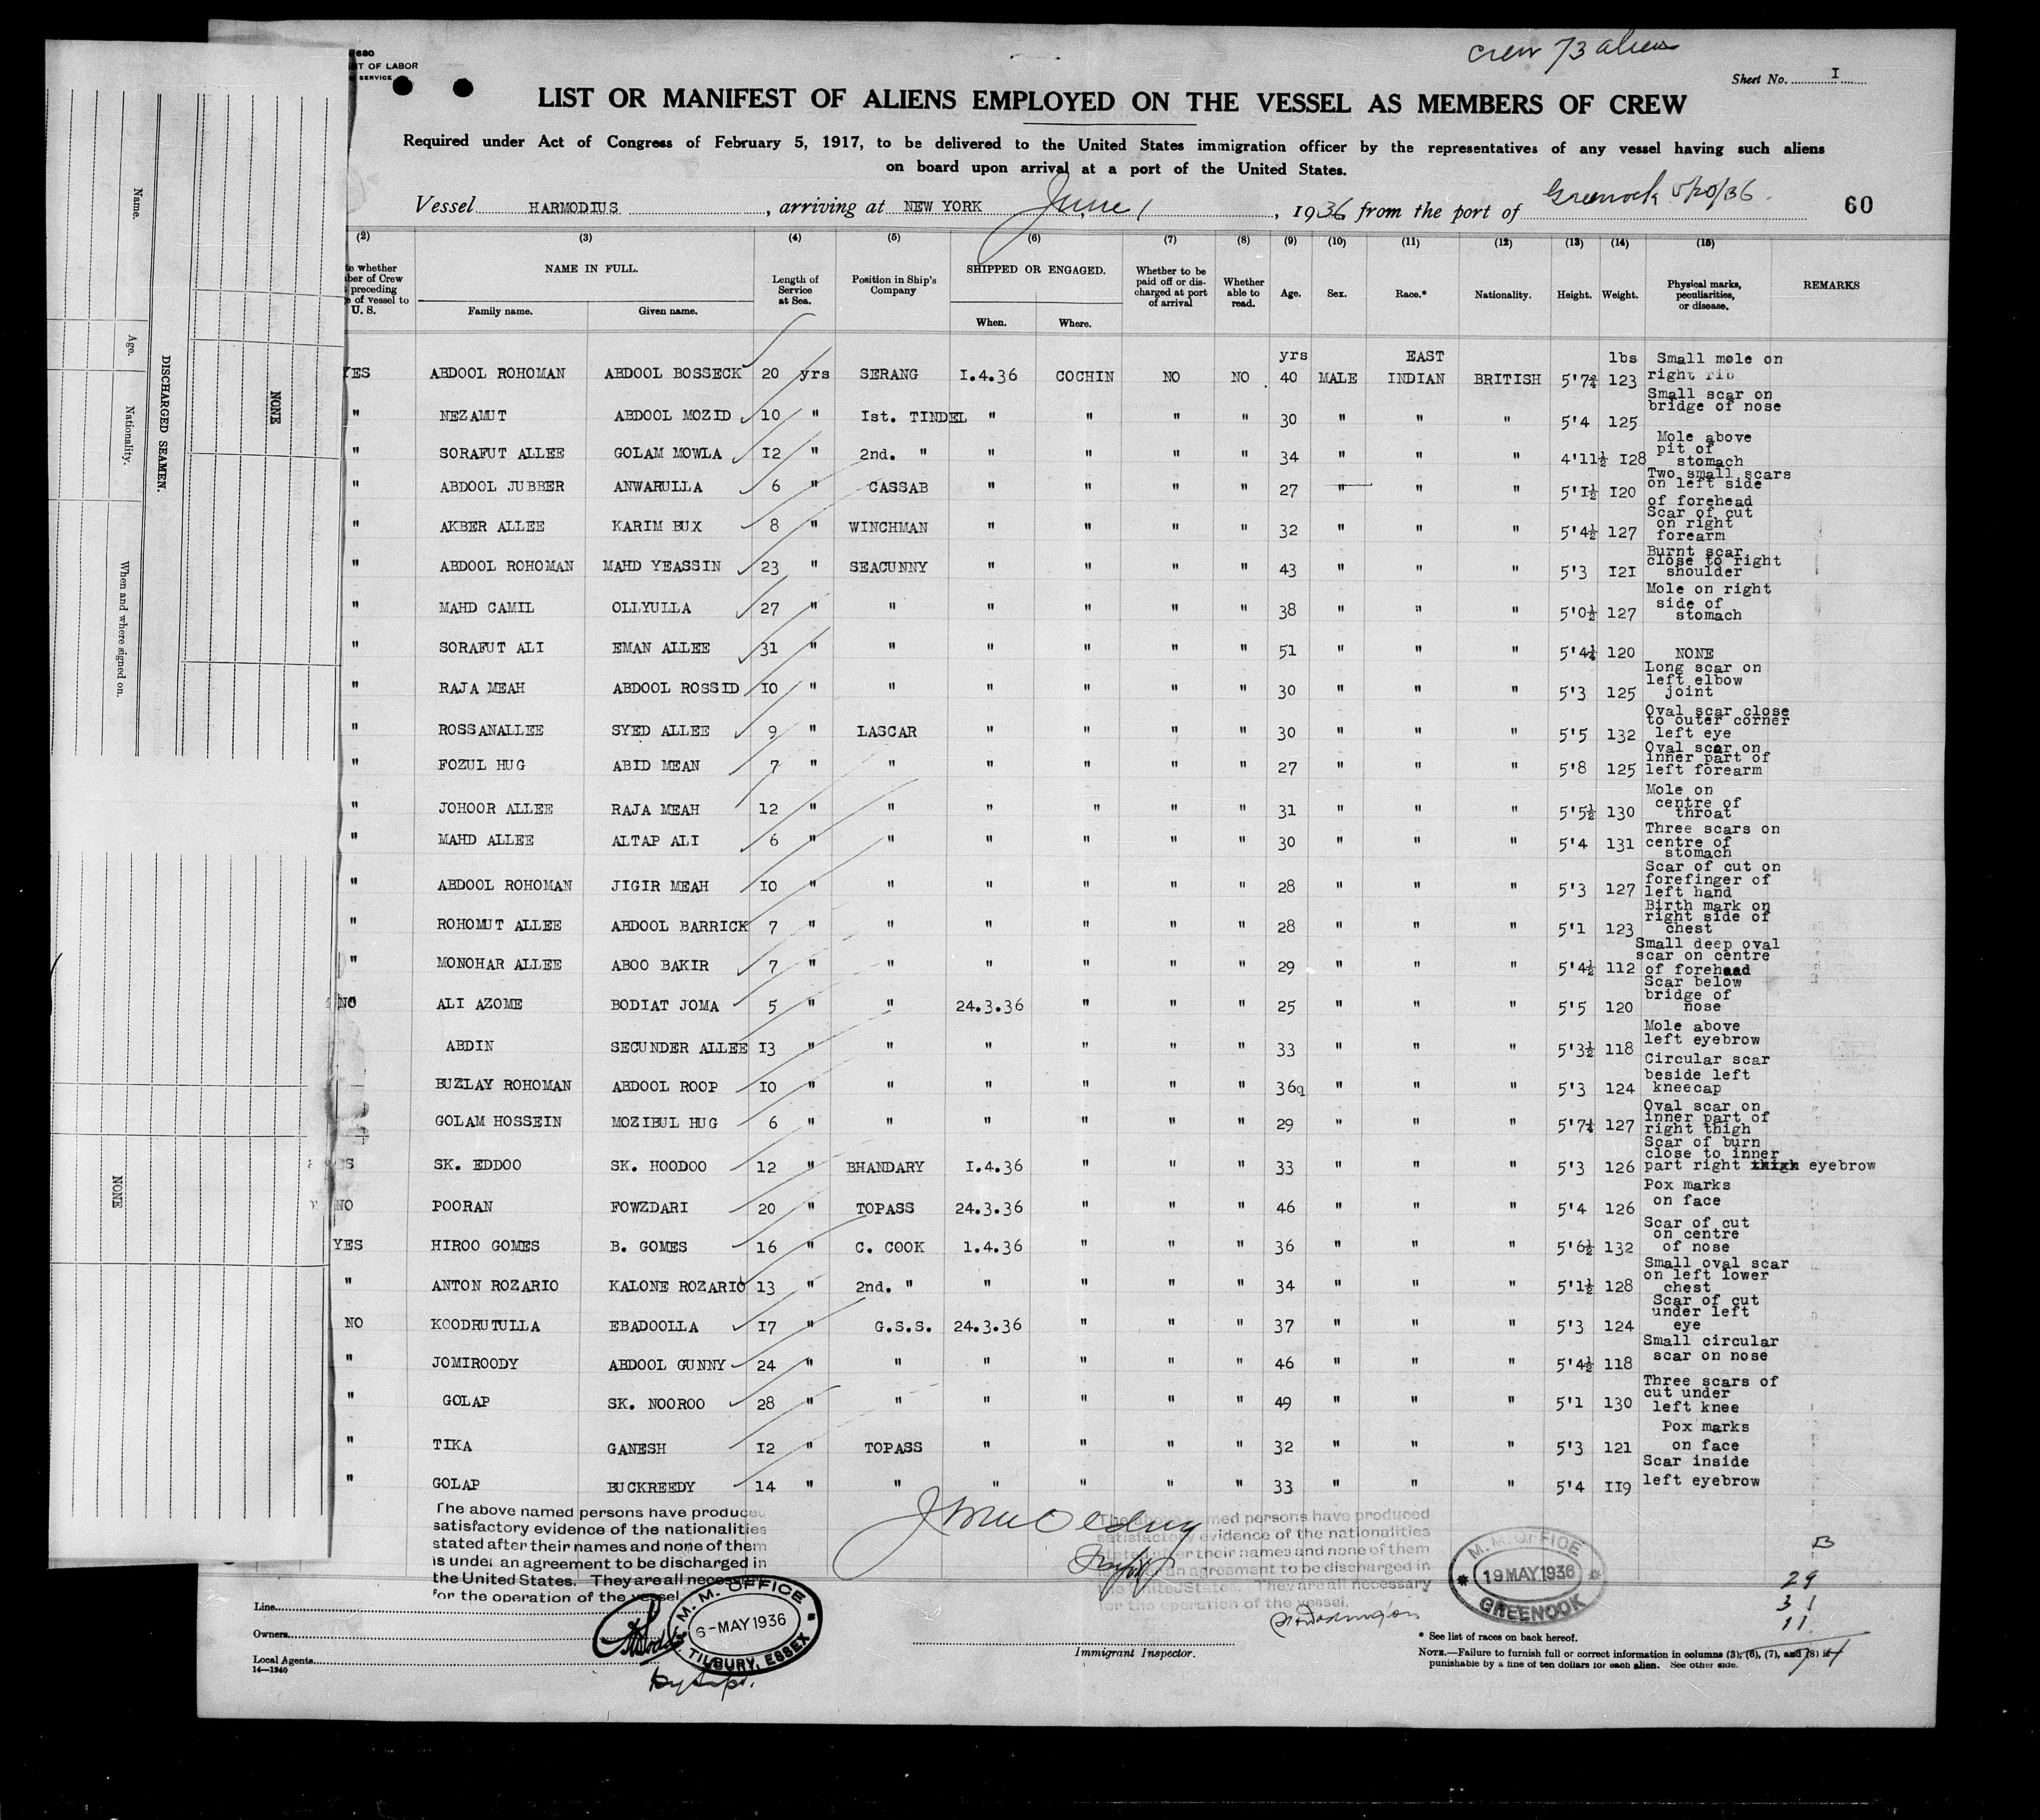 680
T OF LABOR
SERVICE
Crew 73 aliens
Sheet No. I
LIST OR MANIFEST OF ALIENS EMPLOYED ON THE VESSEL AS MEMBERS OF CREW
Required under Act of Congress of February 5, 1917, to be delivered to the United States immigration officer by the representatives of any vessel having such aliens
on board upon arrival at a port of the United States.
Vessel HARMODIUS, arriving at NEW YORK June 1, 1936 from the port of Greenock 5/20/36.
60
(2) (3) (4) (5) (6) (7) (8) (9) (10) (11) (12) (13) (14) (15)
te whether
ber of Crew
preceding
e of vessel to
U. S.
NAME IN FULL.
Family name. Given name.
Length of
Service
at Sea.
Position in Ship's
Company
SHIPPED OR ENGAGED.
When. Where.
Whether to be
paid off or dis-
charged at port
of arrival
Whether
able to
read.
Age. Sex. Race.* Nationality. Height. Weight.
Physical marks,
peculiarities,
or disease.
REMARKS
yrs EAST lbs Small mole on
YES ABDOOL ROHOMAN ABDOOL BOSSECK 20 yrs SERANG I.4.36 COCHIN NO NO 40 MALE INDIAN BRITISH 5'7¾ 123 right rib
Small scar on
bridge of nose
" NEZAMUT ABDOOL MOZID 10 " Ist. TINDEL " " " " 30 " " " 5'4 125
Mole above
pit of
" SORAFUT ALLEE GOLAM MOWLA I2 " 2nd. " " " " " 34 " " " 4'11½ I28 stomach
Two small scars
" ABDOOL JUBBER ANWARULLA 6 " CASSAB " " " " 27 " " " 5'I½ I20 on left side
of forehead
Scar of cut
on right
" AKBER ALLEE KARIM BUX 8 " WINCHMAN " " " " 32 " " " 5'4½ 127 forearm
Burnt scar
close to right
" ABDOOL ROHOMAN MAHD YEASSIN 23 " SEACUNNY " " " " 43 " " " 5'3 I2I shoulder
Mole on right
side of
" MAHD CAMIL OLLYULLA 27 " " " " " " 38 " " " 5'0½ 127 stomach
" SORAFUT ALI EMAN ALLEE 31 " " " " " " 51 " " " 5'4¼ 120 NONE
Long scar on
left elbow
" RAJA MEAH ABDOOL ROSSID IO " " " " " " 30 " " " 5'3 125 joint
Oval scar close
to outer corner
" ROSSANALLEE SYED ALLEE 9 " LASCAR " " " " 30 " " " 5'5 132 left eye
Oval scar on
inner part of
" FOZUL HUG ABID MEAN 7 " " " " " " 27 " " " 5'8 125 left forearm
Mole on
centre of
" JOHOOR ALLEE RAJA MEAH 12 " " " " " " 31 " " " 5'5½ 130 throat
Three scars on
" MAHD ALLEE ALTAP ALI 6 " " " " " " 30 " " " 5'4 131 centre of
stomach
Scar of cut on
forefinger of
" ABDOOL ROHOMAN JIGIR MEAH IO " " " " " " 28 " " " 5'3 127 left hand
Birth mark on
right side of
" ROHOMUT ALLEE ABDOOL BARRICK 7 " " " " " " 28 " " " 5'1 123 chest
Small deep oval
scar on centre
" MONOHAR ALLEE ABOO BAKIR 7 " " " " " " 29 " " " 5'4½ 112 of forehead
Scar below
bridge of
NO ALI AZOME BODIAT JOMA 5 " " 24.3.36 " " " 25 " " " 5'5 120 nose
Mole above
left eyebrow
" ABDIN SECUNDER ALLEE I3 " " " " " " 33 " " " 5'3½ 118
Circular scar
beside left
" BUZLAY ROHOMAN ABDOOL ROOP IO " " " " " " 36q " " " 5'3 124 kneecap
Oval scar on
inner part of
" GOLAM HOSSEIN MOZIBUL HUG 6 " " " " " " 29 " " " 5'7¼ 127 right thigh
Scar of burn
close to inner
YES SK. EDDOO SK. HOODOO 12 " BHANDARY I.4.36 " " " 33 " " " 5'3 126 part right thigh eyebrow
Pox marks
on face
NO POORAN FOWZDARI 20 " TOPASS 24.3.36 " " " 46 " " " 5'4 126
Scar of cut
on centre
YES HIROO GOMES B. GOMES 16 " C. COOK 1.4.36 " " " 36 " " " 5'6½ 132 of nose
Small oval scar
on left lower
" ANTON ROZARIO KALONE ROZARIO 13 " 2nd. " " " " " 34 " " " 5'1½ 128 chest
Scar of cut
under left
NO KOODRUTULLA EBADOOLLA I7 " G.S.S. 24.3.36 " " " 37 " " " 5'3 124 eye
Small circular
scar on nose
" JOMIROODY ABDOOL GUNNY 24 " " " " " " 46 " " " 5'4½ 118
Three scars of
cut under
" GOLAP SK. NOOROO 28 " " " " " " 49 " " " 5'1 130 left knee
Pox marks
" TIKA GANESH I2 " TOPASS " " " " 32 " " " 5'3 121 on face
Scar inside
" GOLAP BUCKREEDY 14 " " " " " " 33 " " " 5'4 II9 left eyebrow
The above named persons have produced
satisfactory evidence of the nationalities
stated after their names and none of them
is under an agreement to be discharged in
the United States. They are all necessary
for the operation of the vessel
The above named persons have produced
satisfactory evidence of the nationalities
stated after their names and none of them
is under an agreement to be discharged in
the United States. They are all necessary
for the operation of the vessel.
M. M. OFFICE
6-MAY 1936
TILBURY, ESSEX
M. M. OFFICE
19 MAY 1936
GREENOCK
B
29
31
11
74
Line
Owners
Local Agents
14—1240
Immigrant Inspector.
* See list of races on back hereof.
NOTE.—Failure to furnish full or correct information in columns (3), (6), (7), and (8) is
punishable by a fine of ten dollars for each alien. See other side.
Name.
Age.
Nationality.
When and where signed on.
DISCHARGED SEAMEN.
NONE
NONE